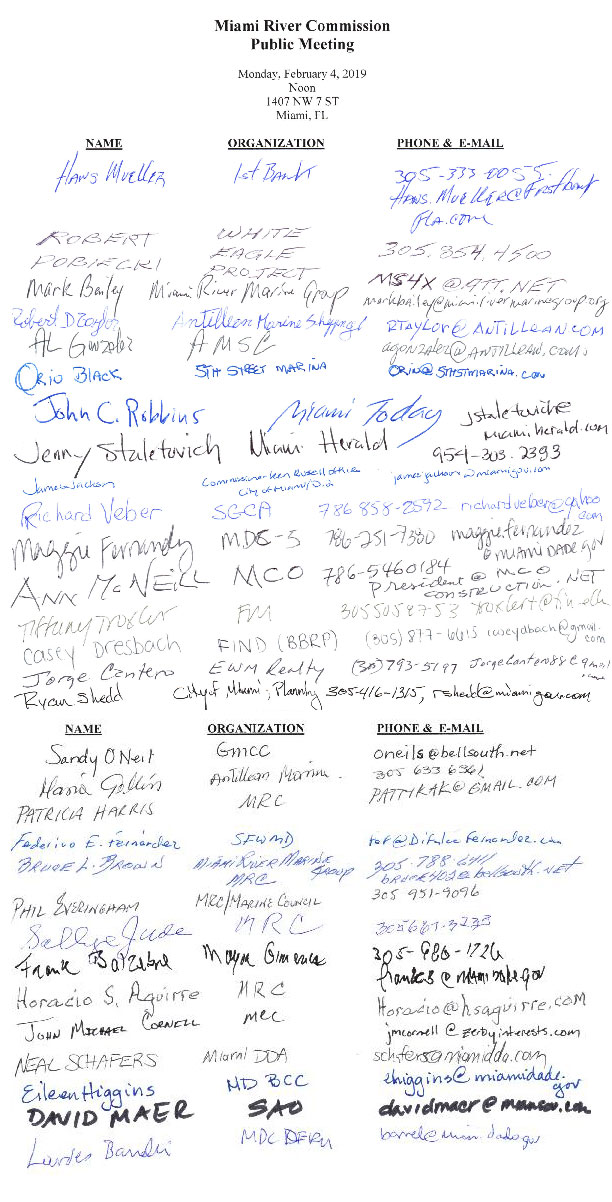 Miami River Commission
Public Meeting
Monday, February 4, 2019
Noon
1407 NW 7 ST
Miami, FL
NAME ORGANIZATION PHONE & E-MAIL
Hans Mueller 1st Bank 305-333-0055
Hans.Mueller@firstbank
fla.com
ROBERT WHITE
POBIECKI EAGLE 305.854.4500
PROJECT
Mark Bailey Miami River Marine Group MS4X@ATT.NET
markbailey@miamirivermarinegroup.org
Robert D Taylor Antillean Marine Shipping RTAYLOR@ANTILLEAN.COM
AL Gonzalez AMSC agonzalez@ANTILLEAN.com
ORIN BLACK 5TH STREET MARINA ORIN@5THSTMARINA.COM
John C. Robbins Miami Today
jstaletovich@
miamiherald.com
Jenny Staletovich Miami Herald 954-303-2393
James Jackson Commissioner Ken Russell office
City of Miami/D.2
Richard Veber SGCA 786 858-2592 richardveber@yahoo
.com
Maggie Fernandez MDC-5 786-251-7330 maggie.fernandez
@MIAMIDADE.gov
ANN McNEILL MCO 786-5460184
president@MCO
CONSTRUCTION.NET
Tiffany Troxler FM
Casey Dresbach FIND (BBRP) (305) 877-6615 caseydbach@gmail.
com
Jorge Cantero EWM Realty (305) 793-5197 Jorgecantero88@gmail
.com
Ryan Shedd City of Miami, Planning 305-416-1315, rshedd@miamigov.com
NAME ORGANIZATION PHONE & E-MAIL
Sandy O'Neil GMCC oneils@bellsouth.net
Maria Antillean Marine 305 633 6361
PATRICIA HARRIS MRC PATTYKAK@GMAIL.COM
Federico E. Fernández SFWMD fef@DiFalcoFernandez.com
BRUCE L. BROWN MIAMI RIVER MARINE GROUP 305.788.6411
MRC @bellsouth.NET
PHIL EVERINGHAM MRC/MARINE COUNCIL 305 951-9096
Sallye Jude MRC
Frank Balzebre Mayor Gimenez 305-986-1726
franks@miamidade.gov
Horacio S. Aguirre MRC Horacio@hsaguirre.com
JOHN MICHAEL CORNELL MRC jmcornell@zerbyinterests.com
NEAL SCHAFERS Miami DDA schafers@miamidda.com
Eileen Higgins MD BCC ehiggins@miamidade.
gov
DAVID MAER SAO
Lourdes MDC DERM